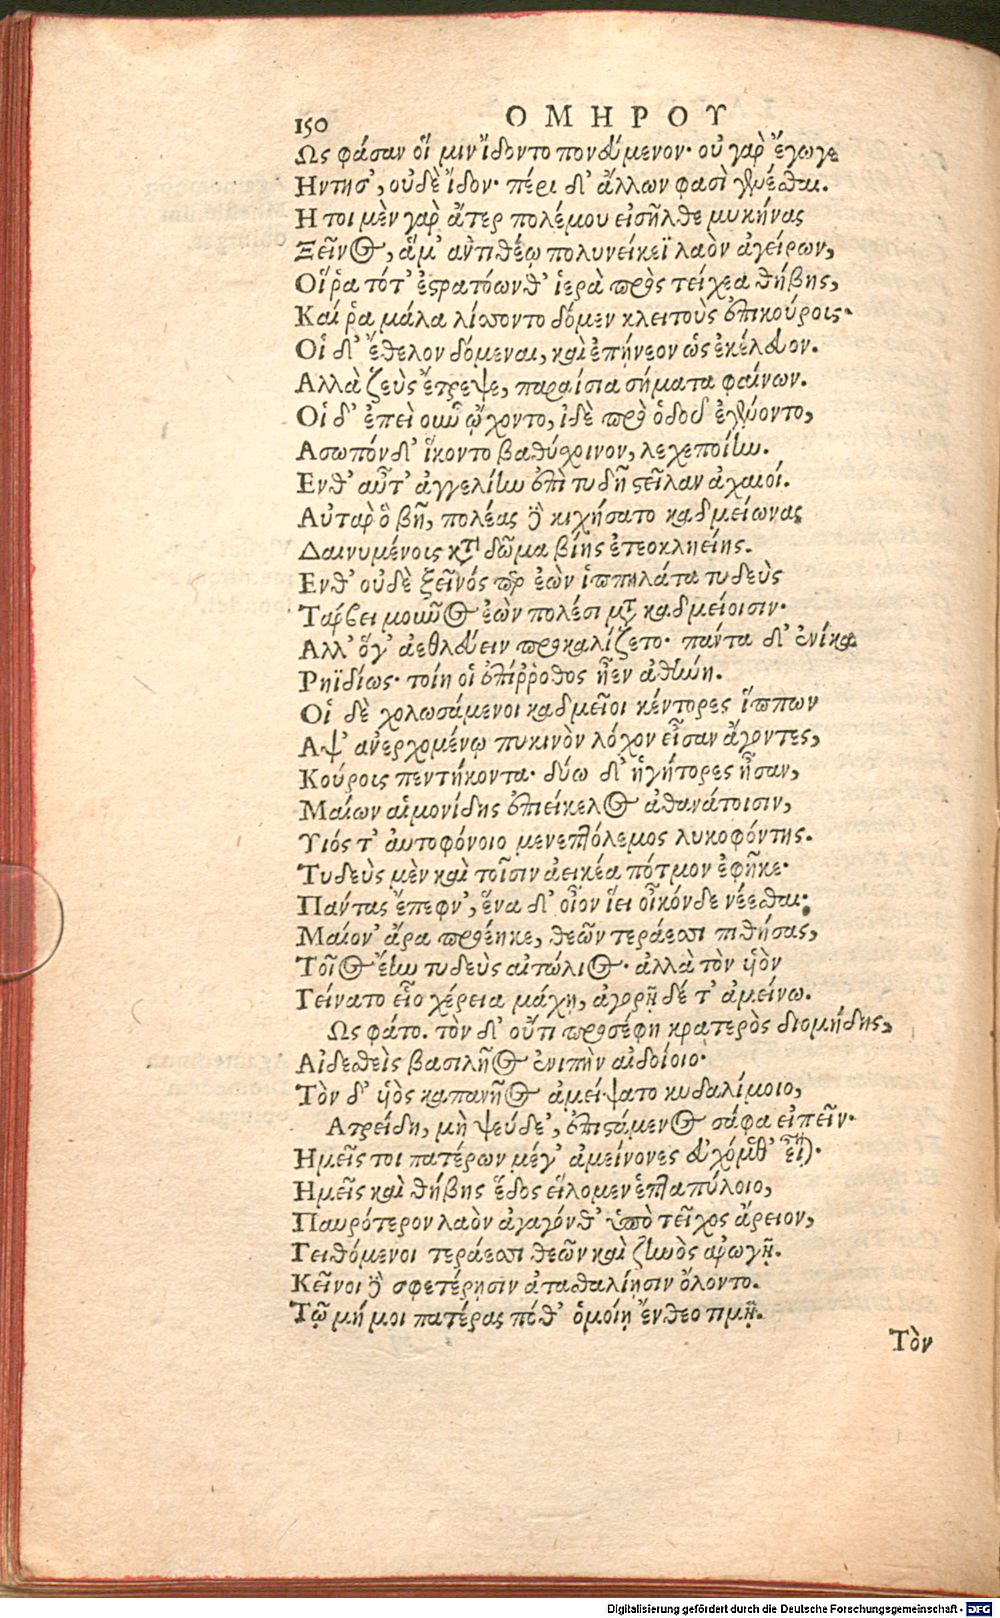 150 ΟΜΗΡΟΥ
Ως φάσαν οἵ μιν ἴδοντο πονεύμενον· οὐ γαρ ἔγωγε
Ηντησ', οὐδὲ ἴδον· πέρι δ' ἄλλων φασὶ γενέσθαι.
Η τοι μὲν γαρ ἄτερ πολέμου εἰσῆλθε μυκήνας
Ξεῖνος, ἅμ' αντιθέῳ πολυνείκεϊ λαὸν ἀγείρων,
Οἵ ρα τότ' ἐστρατόωνθ' ἱερὰ πρὸς τείχεα θήβης,
Καί ῥα μάλα λίσσοντο δόμεν κλειτοὺς ἐπικούροις·
Οἱ δ' ἔθελον δόμεναι, καὶ ἐπῄνεον ὡς ἐκέλευον.
Αλλὰ ζεὺς ἔτρεψε, παραίσια σήματα φαίνων.
Οἱ δ' ἐπεὶ οὖν ᾤχοντο, ἰδὲ πρὸ ὁδοῦ ἐγένοντο,
Ασωπὸν δ' ἵκοντο βαθύσχοινον, λεχεποίην.
Ενθ' αὖτ' ἀγγελίην ἐπὶ τυδῆ στεῖλαν ἀχαιοί.
Αὐταρ ὁ βῆ, πολέας δὲ κιχήσατο καδμείωνας
Δαινυμένοις κατὰ δῶμα βίης ἐτεοκληείης.
Ενθ' οὐδὲ ξεῖνός περ ἐὼν ἱππηλάτα τυδεὺς
Τάρβει μοῦνος ἐὼν πολέσι μετὰ καδμείοισιν·
Αλλ' ὅγ' ἀεθλεύειν προκαλίζετο· πάντα δ' ἐνίκα
Ρηϊδίως· τοίη οἱ ἐπίῤῥοθος ἦεν ἀθήνη.
Οἱ δὲ χολωσάμενοι καδμεῖοι κέντορες ἵππων
Αψ' ανερχομένῳ πυκινὸν λόχον εἶσαν ἄγοντες,
Κούροις πεντήκοντα· δύω δ' ἡγήτορες ἦσαν,
Μαίων αἱμονίδης ἐπιείκελος ἀθανάτοισιν,
Υιός τ' ἀυτοφόνοιο μενεπτόλεμος λυκοφόντης.
Τυδεὺς μὲν καὶ τοῖσιν ἀεικέα πότμον ἐφῆκε·
Πάντας ἔπεφν', ἕνα δ' οἶον ἵει οἶκόνδε νέεσθαι·
Μαίον' ἄρα προέηκε, θεῶν τεράεσσι πιθήσας,
Τοῖος ἔην τυδεὺς αἰτώλιος· ἀλλὰ τὸν υἱὸν
Γείνατο εἷο χέρεια μάχῃ, ἀγορῇ δέ τ' ἀμείνω.
Ως φάτο. τὸν δ' οὔτι προσέφη κρατερὸς διομήδης,
Αἰδεσθεὶς βασιλῆος ἐνιπὴν αἰδοίοιο·
Τὸν δ' υἱὸς καπανῆος ἀμείψατο κυδαλίμοιο,
Ατρείδη, μὴ ψεύδε', ἐπιστάμενος σάφα εἰπεῖν·
Ημεῖς τοι πατέρων μέγ' ἀμείνονες εὐχόμεθ' εἶναι·
Ημεῖς καὶ θήβης ἕδος εἵλομεν ἑπταπύλοιο,
Παυρότερον λαὸν ἀγαγόνθ' ὑπὸ τεῖχος ἄρειον,
Πειθόμενοι τεράεσσι θεῶν καὶ ζηνὸς αρωγῇ.
Κεῖνοι δὲ σφετέρῃσιν ἀτασθαλίῃσιν ὄλοντο.
Τῷ μή μοι πατέρας ποθ' ὁμοίῃ ἔνθεο τιμῇ.
Τὸν
Digitalisierung gefördert durch die Deutsche Forschungsgemeinschaft - DFG